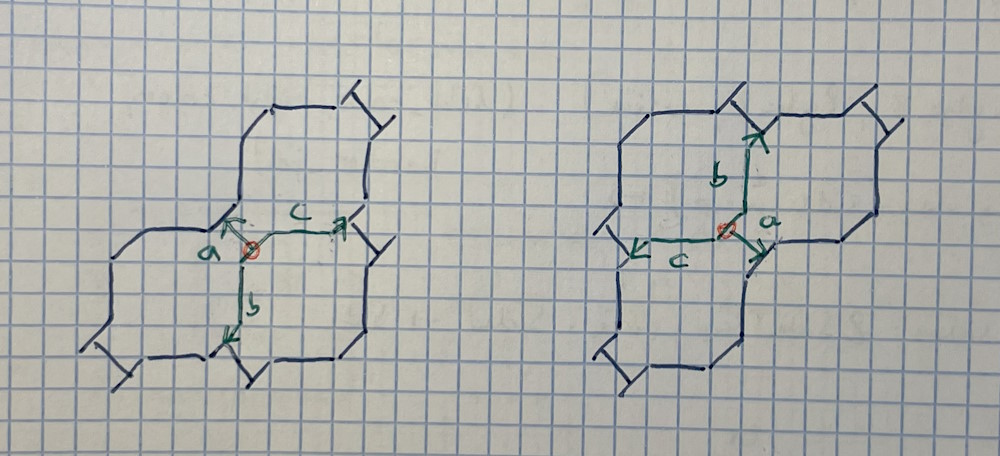 c
a
b
b
a
c